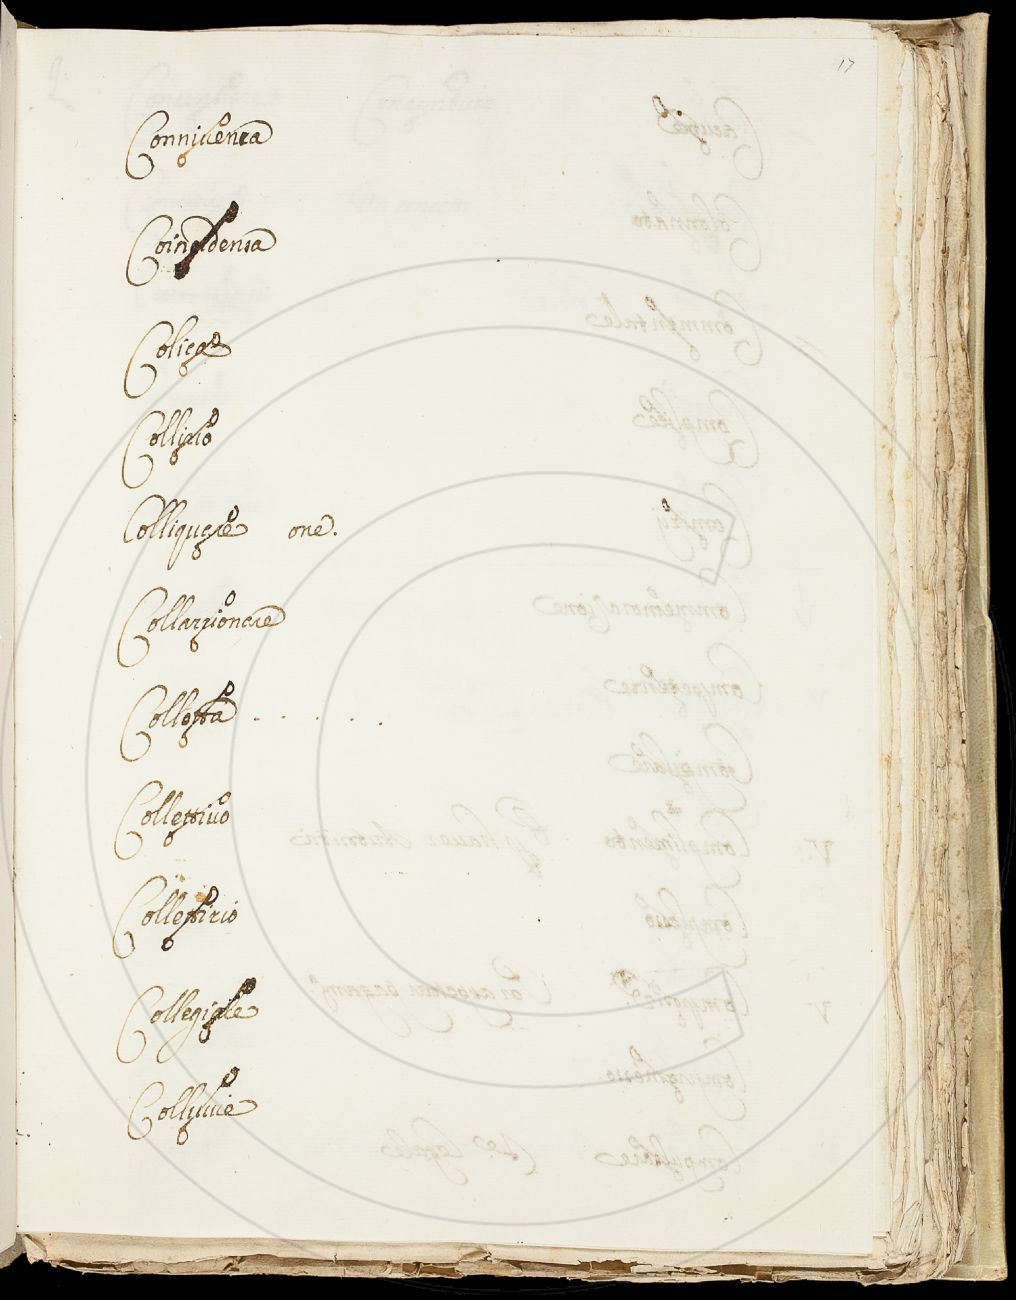 17
Conniuenza
Coincidenza
Colica
Collirio
Colliquare one.
Collazzionare
Colletta . . . . .
Collettiuo
Collettizio
Collegiale
Colluuie